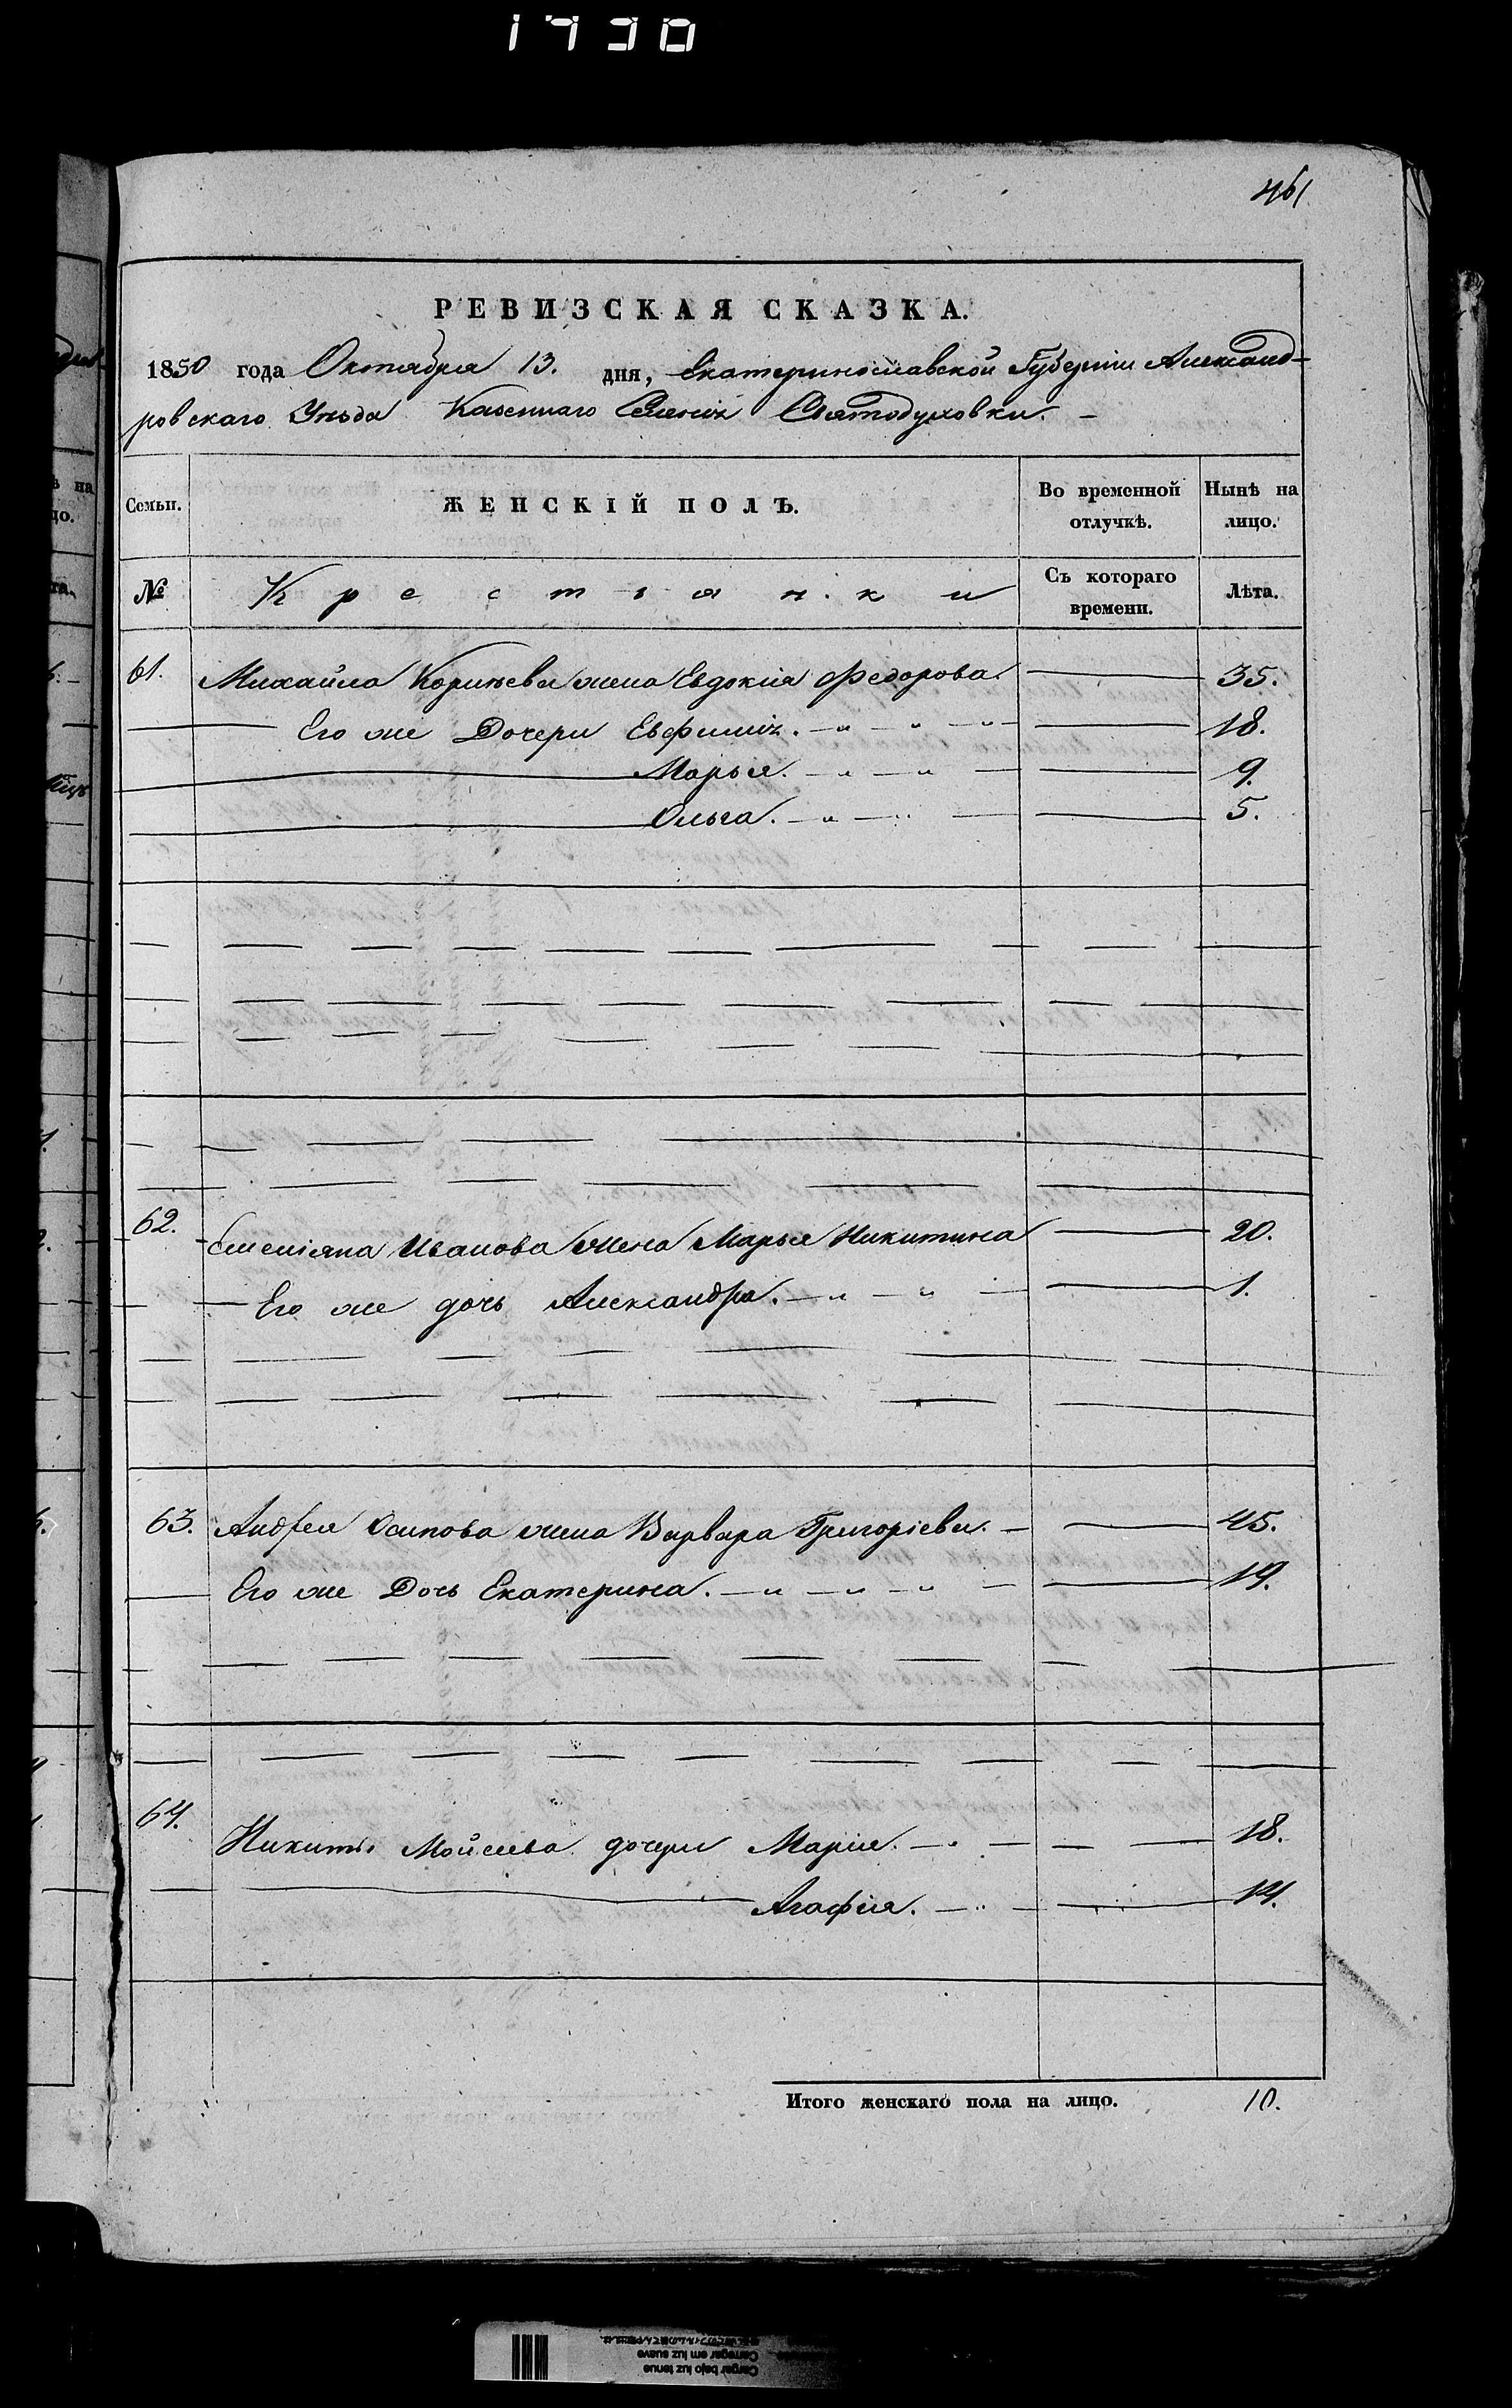 1730
461
РЕВИЗСКАЯ СКАЗКА.
1850 года Октября 13. дня, Екатеринославской Губерніи Александ-
ровскаго Уѣзда Казеннаго Селенія Святодуховки. -
Семьи. ЖЕНСКІЙ ПОЛЪ. Во временной отлучкѣ. Нынѣ на лицо.
№ Крестіянки Съ котораго времени. Лѣта.
61. Михайла Корнѣева жена Евдокія Федорова. 35.
Его же Дочери Евфимія. 18.
Марья. 9.
Ольга. 5.
62. Емеліяна Иванова жена Марья Никитина 20.
Его же дочь Александра. 1.
63. Андрея Осипова жена Варвара Григоріева. 45.
Его же Дочь Екатерина. 19.
64. Никиты Мойсеева дочери Марія. 18.
Агафія. 14.
Итого женскаго пола на лицо. 10.
Carregar em luz suave
Cargar bajo luz tenue